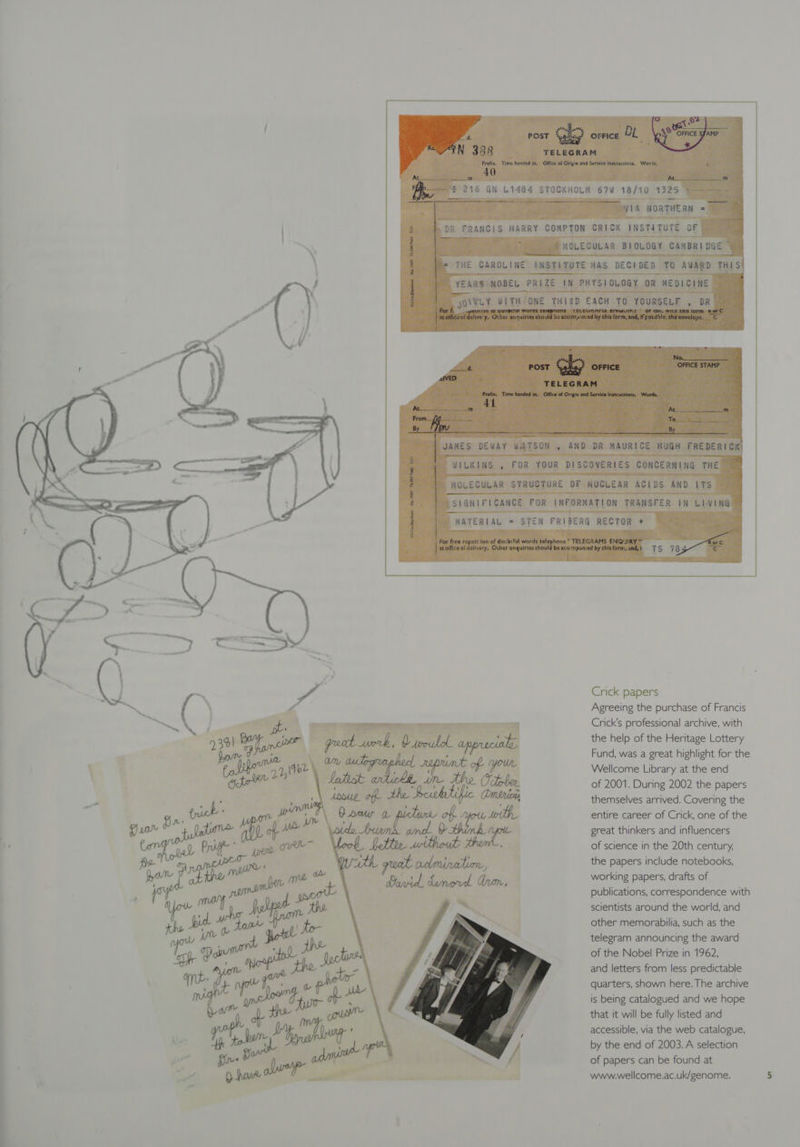 POST OFFICE DL
OFFICE STAMP
N 388
TELEGRAM
Prefix. Time handed in. Office of Origin and Service Instructions. Words.
40
At m
At m
$ 216 GN L1404 STOCKHOLM 67W 18/10 1325
VIA NORTHERN =
DR FRANCIS HARRY COMPTON CRICK INSTITUTE OF
MOLECULAR BIOLOGY CAMBRIDGE
= THE CAROLINE INSTITUTE HAS DECIDED TO AWARD THIS
YEARS NOBEL PRIZE IN PHYSIOLOGY OR MEDICINE
JOINTLY WITH ONE THIRD EACH TO YOURSELF , DR
at office of delivery. Other enquiries should be accompanied by this form, and, if possible, the envelope.
POST OFFICE
No.
OFFICE STAMP
TELEGRAM
Prefix. Time handed in. Office of Origin and Service Instructions. Words.
41
At m
At m
From
To
By
By
JAMES DEWAY WATSON , AND DR MAURICE HUGH FREDERICK
WILKINS , FOR YOUR DISCOVERIES CONCERNING THE
MOLECULAR STRUCTURE OF NUCLEAR ACIDS AND ITS
SIGNIFICANCE FOR INFORMATION TRANSFER IN LIVING
MATERIAL = STEN FRIBERG RECTOR +
For free repetition of doubtful words telephone " TELEGRAMS ENQUIRY "
at office of delivery. Other enquiries should be accompanied by this form, and, i
TS
2381 Bay St.
San Francisco
California
October 22, 1962
Dear Dr. Crick:
Congratulations upon winning
the Nobel Prize. All of us in
San Francisco were over-
joyed at the news.
You may remember me as
the kid who helped escort
you in a taxi from the
Fairmont Hotel to
Mt. Zion Hospital the
night you gave the lecture.
I am enclosing a photo-
graph of the two of us
taken by my cousin
Dr. David
I have always admired your
great work. I would appreciate
an autographed reprint of your
latest article in the October
issue of the Scientific American
I saw a picture of you with
side burns and I think you
look better without them.
With great admiration,
David Aron.
Crick papers
Agreeing the purchase of Francis
Crick's professional archive, with
the help of the Heritage Lottery
Fund, was a great highlight for the
Wellcome Library at the end
of 2001. During 2002 the papers
themselves arrived. Covering the
entire career of Crick, one of the
great thinkers and influencers
of science in the 20th century,
the papers include notebooks,
working papers, drafts of
publications, correspondence with
scientists around the world, and
other memorabilia, such as the
telegram announcing the award
of the Nobel Prize in 1962,
and letters from less predictable
quarters, shown here. The archive
is being catalogued and we hope
that it will be fully listed and
accessible, via the web catalogue,
by the end of 2003. A selection
of papers can be found at
www.wellcome.ac.uk/genome.
5